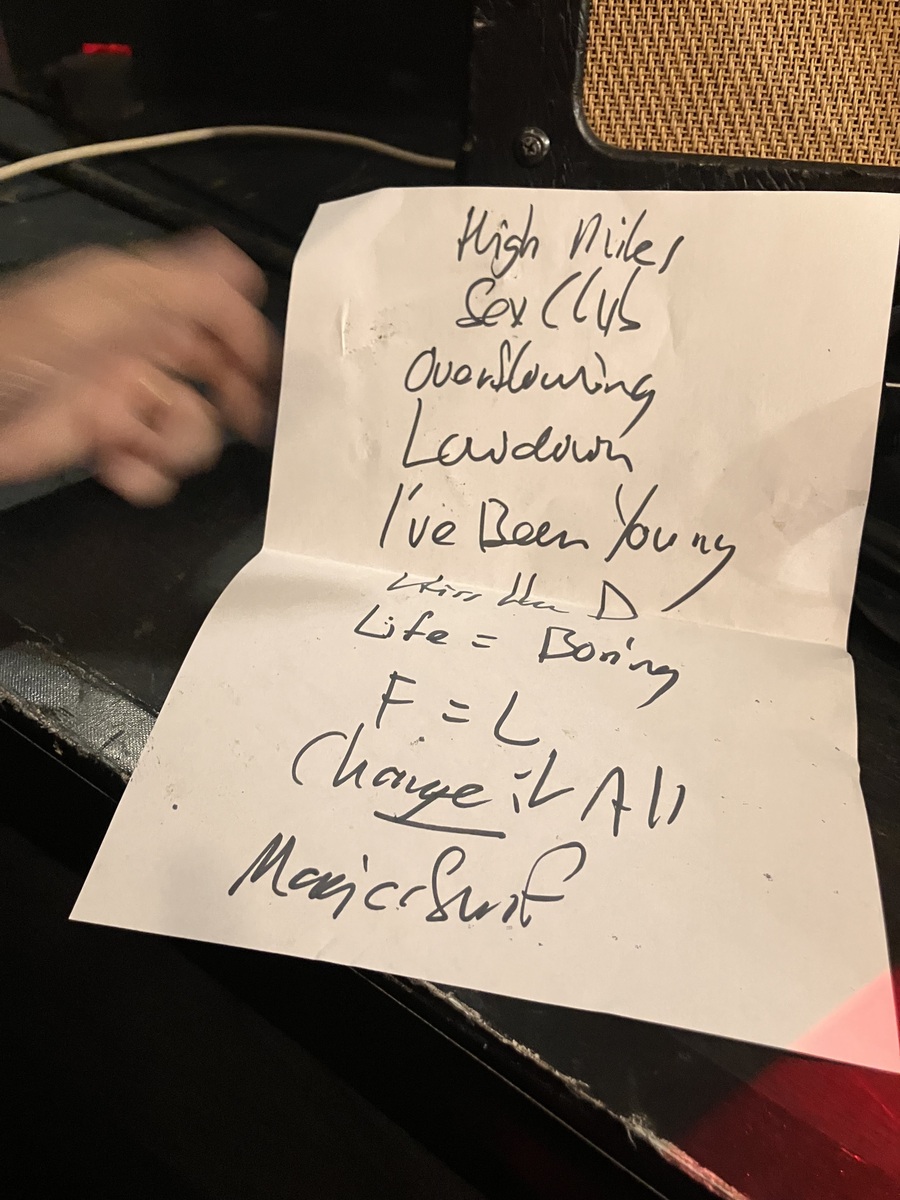 High Miles
Sex Club
Overflowing
Lowdown
I've Been Young
Kiss the D
Life = Boring
F = L
Change it All
Magic Surf